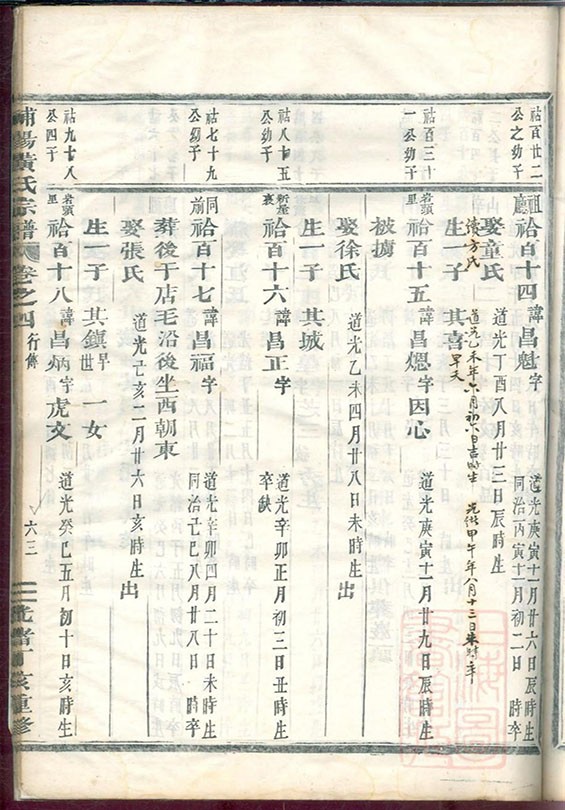 祜百廿二
公之幼子
祖廳
祫百十四諱昌魁字
道光庚寅十一月廿六日辰時生
同治丙寅十一月初二日 時卒
娶童氏
道光丁酉八月廿三日辰時生
續方氏
道光乙未年六月初八日吉時生 光緒甲午年八月十三日未時卒
生一子其喜
早夭
祜百三十
一公幼子
岩頭
里
祫百十五諱昌愢字因心
道光庚寅十一月廿九日辰時生
被擄
娶徐氏
道光乙未四月廿八日未時生 出
生一子其城
祜八十五
公幼子
祫百十六諱昌正字
道光辛卯正月初三日丑時生
卒缺
祜七十九
公幼子
同前
祫百十七諱昌福字
道光辛卯四月二十日未時生
同治己巳八月廿日 時卒
葬後于店毛沿後坐西朝東
娶張氏
道光己亥二月廿六日亥時生 出
生一子其鎮早世一女
祜九十八
公四子
岩頭
里
祫百十八諱昌炳字虎文
道光癸巳五月初十日亥時生
浦陽黃氏宗譜 卷之四 行傳 六三 光緒 亥重修